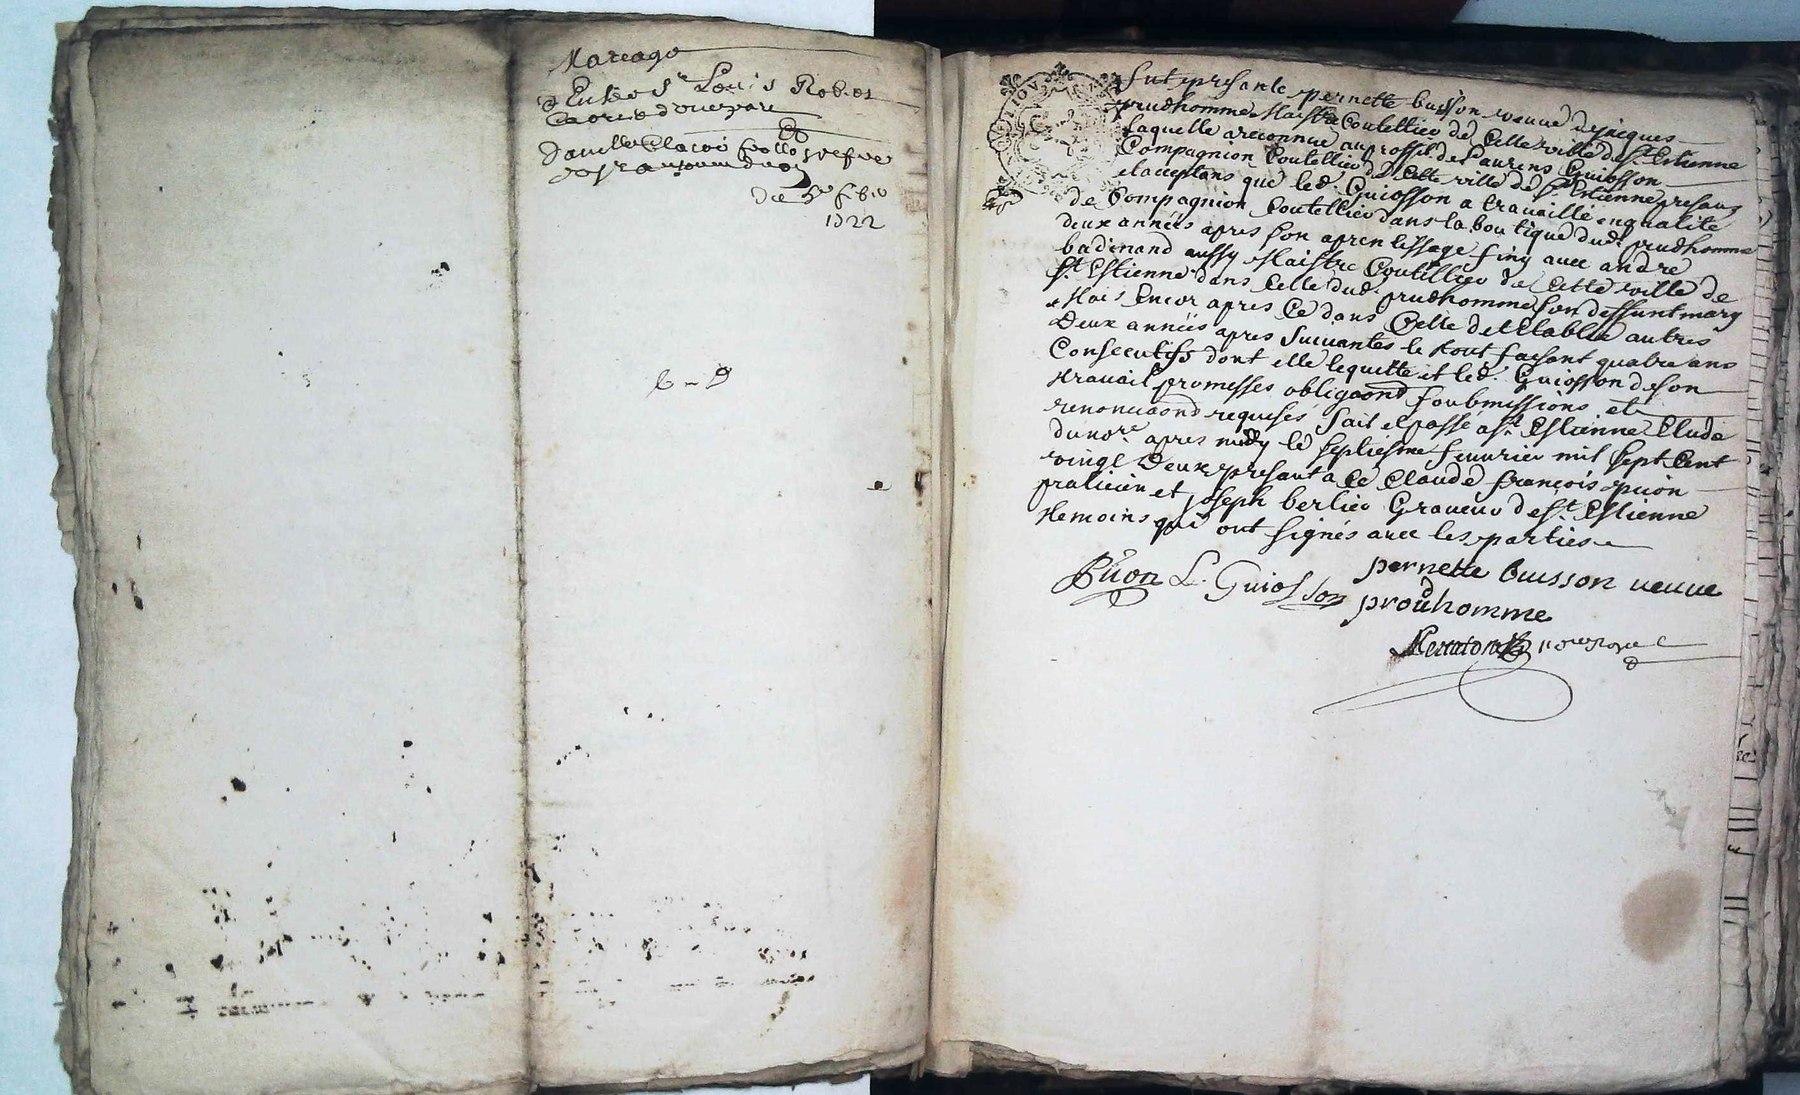 Mareage
Entre Sr Louis Robert
Et
Damlle
Du 5e febr
1722
6 - 9
fut presante pernette buisson veuve de jacques
prudhomme Maistre Coutellier de Cette ville de St Estienne
laquelle a reconnue au proffit de Laurens Guiosson
Compagnion Coutellier de Cette ville de St Estienne presant
et acceptans que led. Guiosson a travaillé en qualité
de Compagnion Coutellier dans la boutique dud. prudhomme
deux années apres son aprentissage finy avec andre
badinand aussy Maistre Coutellier de Cette ville de
St Estienne dans Celle dud. prudhomme son deffunt mary
Mais Encor apres Ce dans Celle de autres
Deux années apres Suivantes le tout faisant quatre ans
Consecutifs dont elle le quitte et led. Guiosson de son
travail promesses obligaõnd soubmissions et
renonciaõnd requises fait et passé a St Estienne Etude
du nore apres midy le septiesme fevvrier mil sept Cent
vingt Deux presant a Ce Claude françois puion
praticien et joseph berlier Graveur de St Estienne
temoins qui ont signés avec les parties
pernette buisson veuve
L. Guiosson
proudhomme